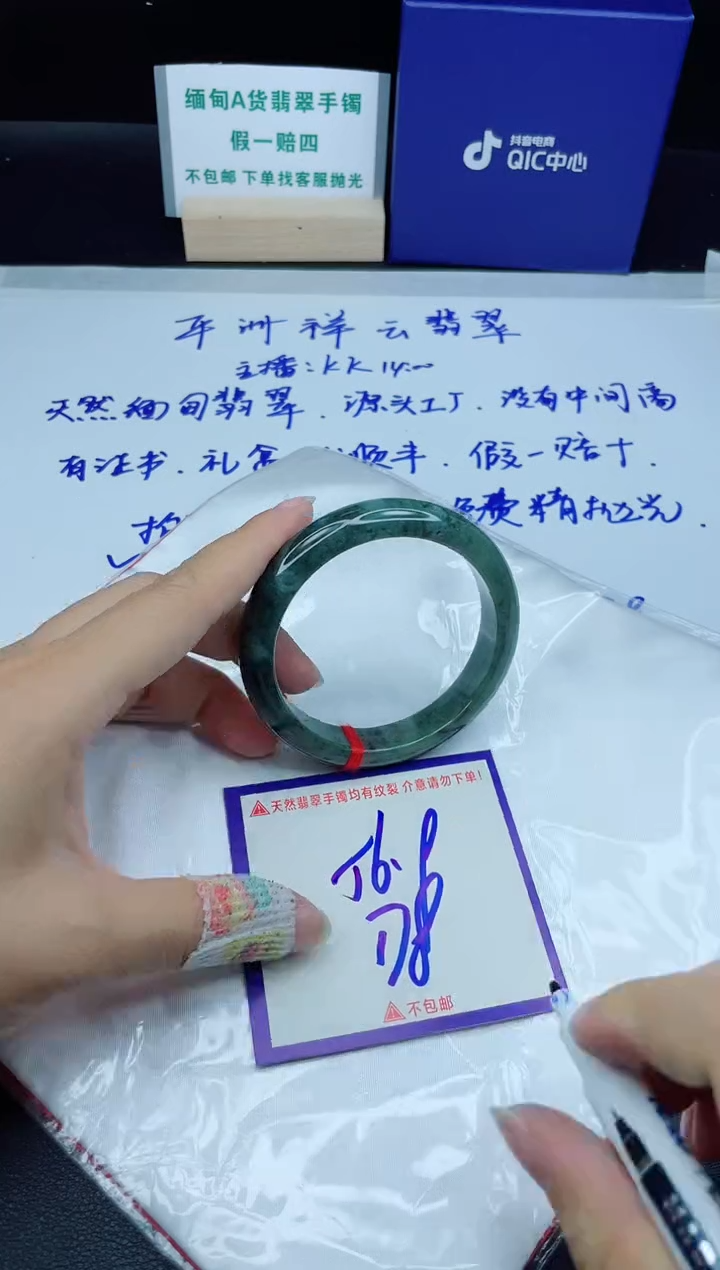 缅甸A货翡翠手镯
假一赔四
不包邮 下单找客服抛光
抖音电商
QIC中心
平洲祥云翡翠
主播:KK 14:00
天然缅甸翡翠.源头工厂.没有中间商
有证书.礼盒 顺丰.假一赔十.
免费精抛光.
天然翡翠手镯均有纹裂 介意请勿下单!
不包邮